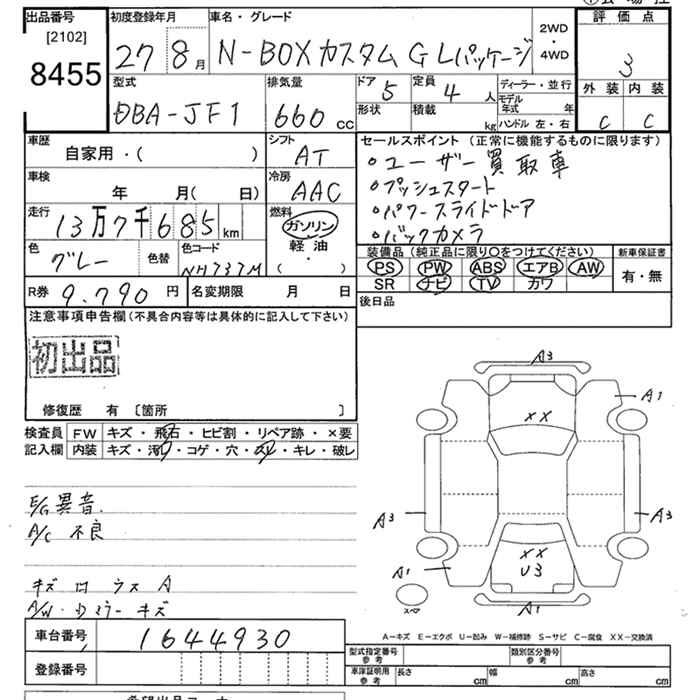 出品番号
[2102]
8455
初度登録年月
27 8月
車名・グレード
N-BOXカスタム G Lパッケージ
2WD
・
4WD
評価点
3
外装 内装
C C
型式
DBA-JF1
排気量
660 CC
ドア 5
定員 4 人
形状
積載 kg
ディーラー・並行
モデル年式 年
ハンドル 左・右
車歴
自家用・( )
シフト
AT
車検
年 月( 日)
冷房
AAC
走行
13万7千685km
燃料
ガソリン
軽油
( ・ )
色
グレー
色替
色コード
NH737M
R券 9.790 円
名変期限 月 日
セールスポイント (正常に機能するものに限ります)
・ユーザー買取車
・プッシュスタート
・パワースライドドア
・バックカメラ
装備品 (純正品に限り〇をつけてください)
PS PW ABS エアB AW
SR ナビ TV カワ
新車保証書
有・無
後日品
注意事項申告欄 (不具合内容等は具体的に記入して下さい)
初出品
修復歴 有 〔箇所 〕
検査員 FW キズ・飛石・ヒビ割・リペア跡・×要
記入欄 内装 キズ・汚レ・コゲ・穴・スレ・キレ・破レ
E/G異音.
A/C 不良
A/W・ ミラー キズ
A3
A1
XX
A3
A3
XX
U3
A1
A1
スペア
A-キズ E-エクボ U-凹み W-補修跡 S-サビ C-腐食 XX-交換済
車台番号 1644930
登録番号
型式指定番号
参考
類別区分番号
参考
車庫証明用
参考
長さ cm
幅 cm
高さ cm